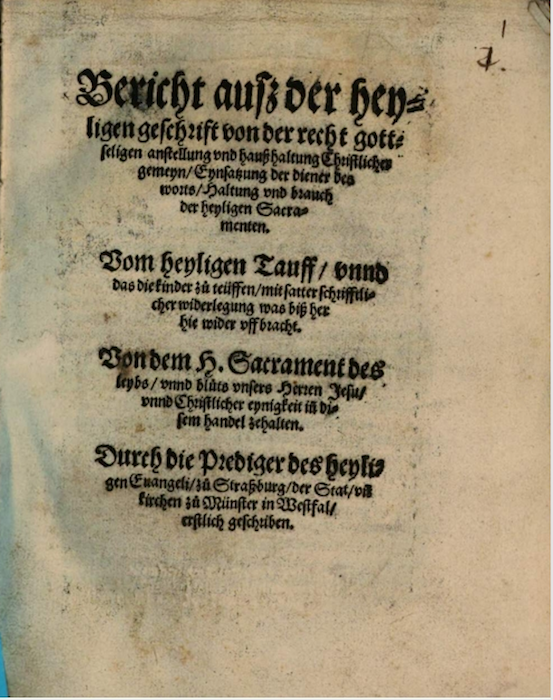 1
1.
Bericht ausz der hey-
ligen geschrift von der recht gott-
seligen anstellung vnd haußhaltung Christlicher
gemeyn/ Eynsatzung der diener des
worts/ Haltung vnd brauch
der heyligen Sacra-
menten.
Vom heyligen Tauff/ vnnd
das die kinder zů teüffen/ mit satter schrifftli-
cher widerlegung was biß her
hie wider vffbracht.
Von dem H. Sacrament des
leybs/ vnnd blůts vnsers Herren Jesu/
vnnd Christlicher eynigkeit in di-
sem handel zehalten.
Durch die Prediger des heyli-
gen Euangeli/ zů Straßburg/ der Stat/ vñ
kirchen zů Münster in Westfal/
erstlich geschriben.